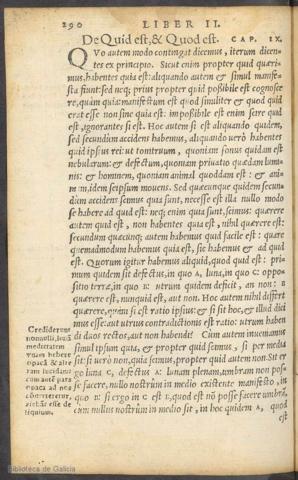 290 LIBER II.
De Quid est, & Quod est. CAP. IX.
QVo autem modo contingat dicemus, iterum dicen-
tes ex principio. Sicut enim propter quid quæri-
mus, habentes quia est: aliquando autem & simul manife-
sta fiunt: sed neq; prius propter quid poßibile est cognosce
re, quàm quia: manifestum est quod similiter & quod quid
erat esse non sine quia est: impoßibile est enim scire quid
est, ignorantes si est. Hoc autem si est aliquando quidem,
sed secundùm accidens habemus, aliquando verò habemus
quid ipsius rei: ut tonitruum, quoniam sonus quidam est
nebularum: & defectum, quoniam priuatio quædam lumi-
nis: & hominem, quoniam animal quoddam est: & ani-
mam, idem seipsum mouens. Sed quæcunque quidem secun-
dùm accidens scimus quia sunt, necesse est illa nullo modo
se habere ad quid est: neq; enim quia sunt, scimus: quærere
autem quid est, non habentes quia est, nihil quærere est:
secundùm quæcunq; autem habemus quid facile est: quare
quemadmodum habemus quia est, sic habemus & ad quid
est. Quorum igitur habemus aliquid, quod quid est: pri-
mum quidem sit defectus, in quo A, luna, in quo C: oppo-
sitio terræ, in quo B: utrum quidem deficit, an non: B
quærere est, nunquid est, aut non. Hoc autem nihil differt
quærere, quàm si est ratio ipsius: & si sit hoc, & illud dici
mus esse: aut utrius contradictionis est ratio: utrum haben
di duos rectos, aut non habendi? Cum autem inuenamus
simul ipsum quia, & propter quid scimus, si per media
sit: si uero non, quia scimus, propter quid autem non. Sit er
go luna C, defectus A: lunam plenam, umbram non pos-
se facere, nullo nostrûm in medio existente manifesto, in
quo B: si ergo in C est B, quod est nō posse facere umbrā,
cum nullus nostrûm in medio sit, in hoc quidem A, quod
est
Crediderunt
nonnulli, lunā
meditatam
vmbra
opaca &
ram incidant
cum autē
opaca ad nos
conuerteretur,
liquium.
Biblioteca de Galicia